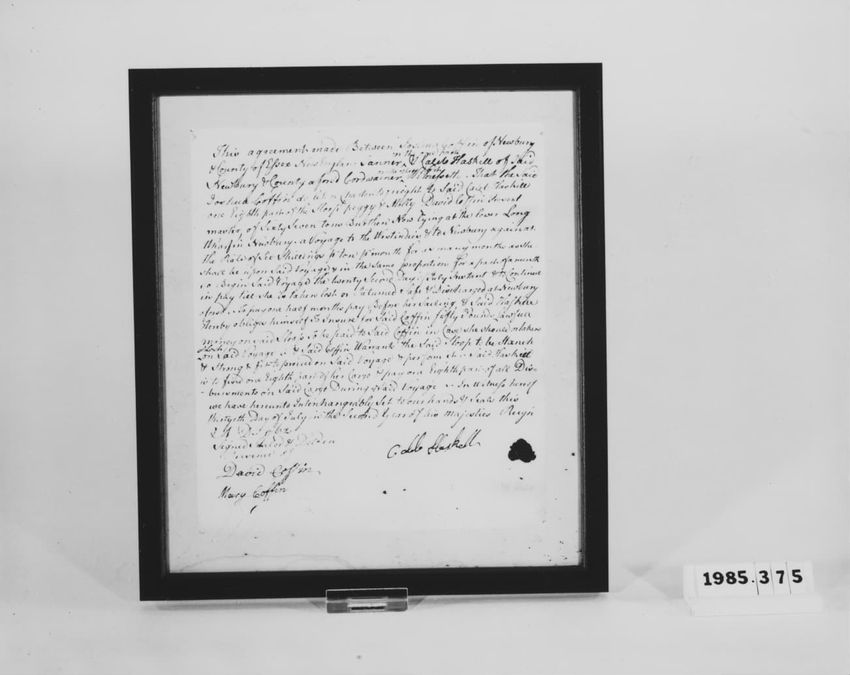 This agreement made Between Joshua Coffin of Newbury
in the one part
& County of Essex New England Tanner, & Caleb Haskell of Said
Newbury & County aforsd Cordwainer Witnesseth. That the Said
Joshua Coffin do let to Said Caleb Haskell
one Eighth part of the Sloop Peggy & Molly David Coffin
master of Sixty Seven tons Burthen Now lying at the lower Long
Wharf in Newbury a Voyage to the Westindies & to Newbury again at
the Rate of Six Shillings pr ton pr month for as many months as She
Shall be upon Said Voyage & in the Same proportion for a part of a month
to Begin Said Voyage the twenty Second Day of July Instent & to Continue
in pay till She is taken Lost or Returned Safe & Discharged at Newbury
aforsd & to pay one half months pay Before her Saileing & Said Haskell
hereby obliges himself To Insure for Said Coffin fifty Pounds Lawfull
money on said Sloop To be paid to Said Coffin in Case She Should be taken
or Lost
on Said Voyage & Said Coffin Warrants the Said Sloop to be Stanch
& Strong & fit to proceed on Said Voyage & Said Haskell
is to find one Eighth part of her Cargo & pay one Eighth part of all Dis=
bursments on Said Cargo During Said Voyage In witness hereof
we have hereunto Interchangeably Set to our hands & Seals this
thirtyeth Day of July in the Second Year of his Majesties Reign
1762
Signed Sealed & Delderd
in Presence of
Caleb Haskell
David Coffin
Mary Coffin
1985.375